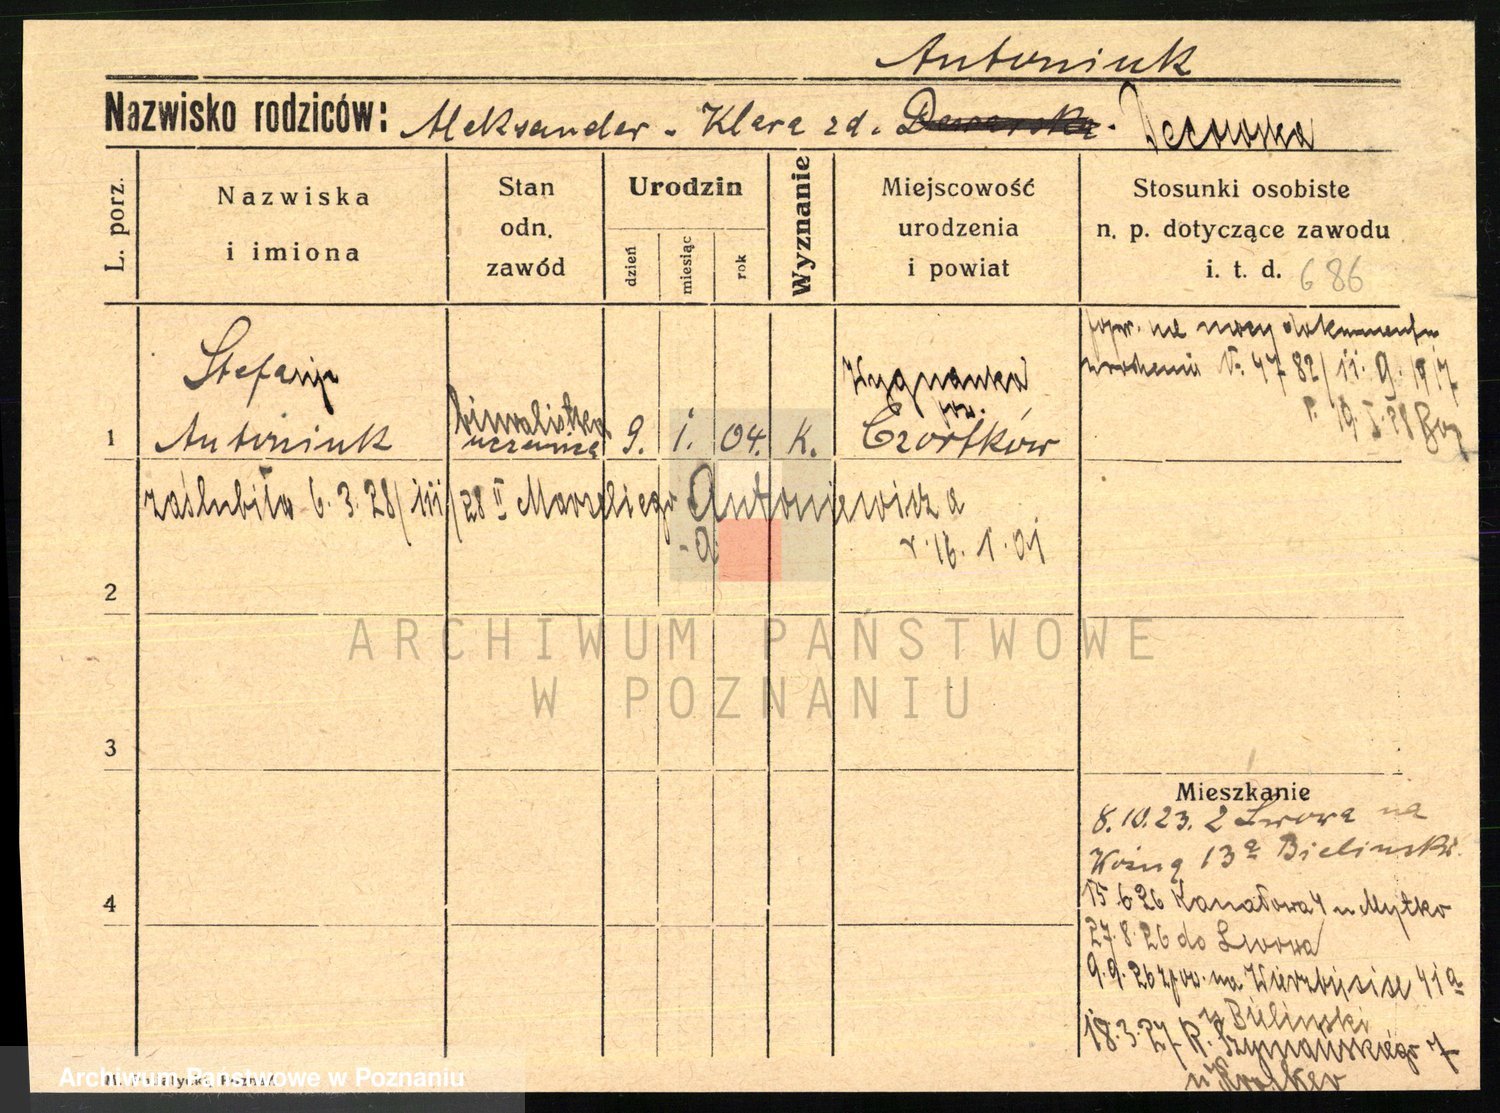 Antoniuk
Nazwisko rodziców: Aleksander - Klara zd.
L. porz.
Nazwiska
i imiona
Stan
odn.
zawód
Urodzin
dzień
miesiąc
rok
Wyznanie
Miejscowość
urodzenia
i powiat
Stosunki osobiste
n. p. dotyczące zawodu
i. t. d. 686
1
Stefanja
Antoniuk
biuralistka
uczennica
9. i. 04. K.
Wygnanka
pow.
Czortków
popr. na mocy dokumentu
urodzenia 4782/ii.9.1917
r. 19 I 28
zaślubiła 6.3.28/iii/28 II Marzeliego Antoniewicza
r. 16. 1. 01
2
3
4
Mieszkanie
8.10.23. z Lwowa na
Woźną 13a Bielinski.
15 6 26 Kanałowa u Mytko
27.8.26 do Lwowa
9.9.26 pow. na Wierzbięcice 41a
u Bielinski
18.3.27 R. Szymańskiego 7
u
ARCHIWUM PAŃSTWOWE
W POZNANIU
Archiwum Państwowe w Poznaniu